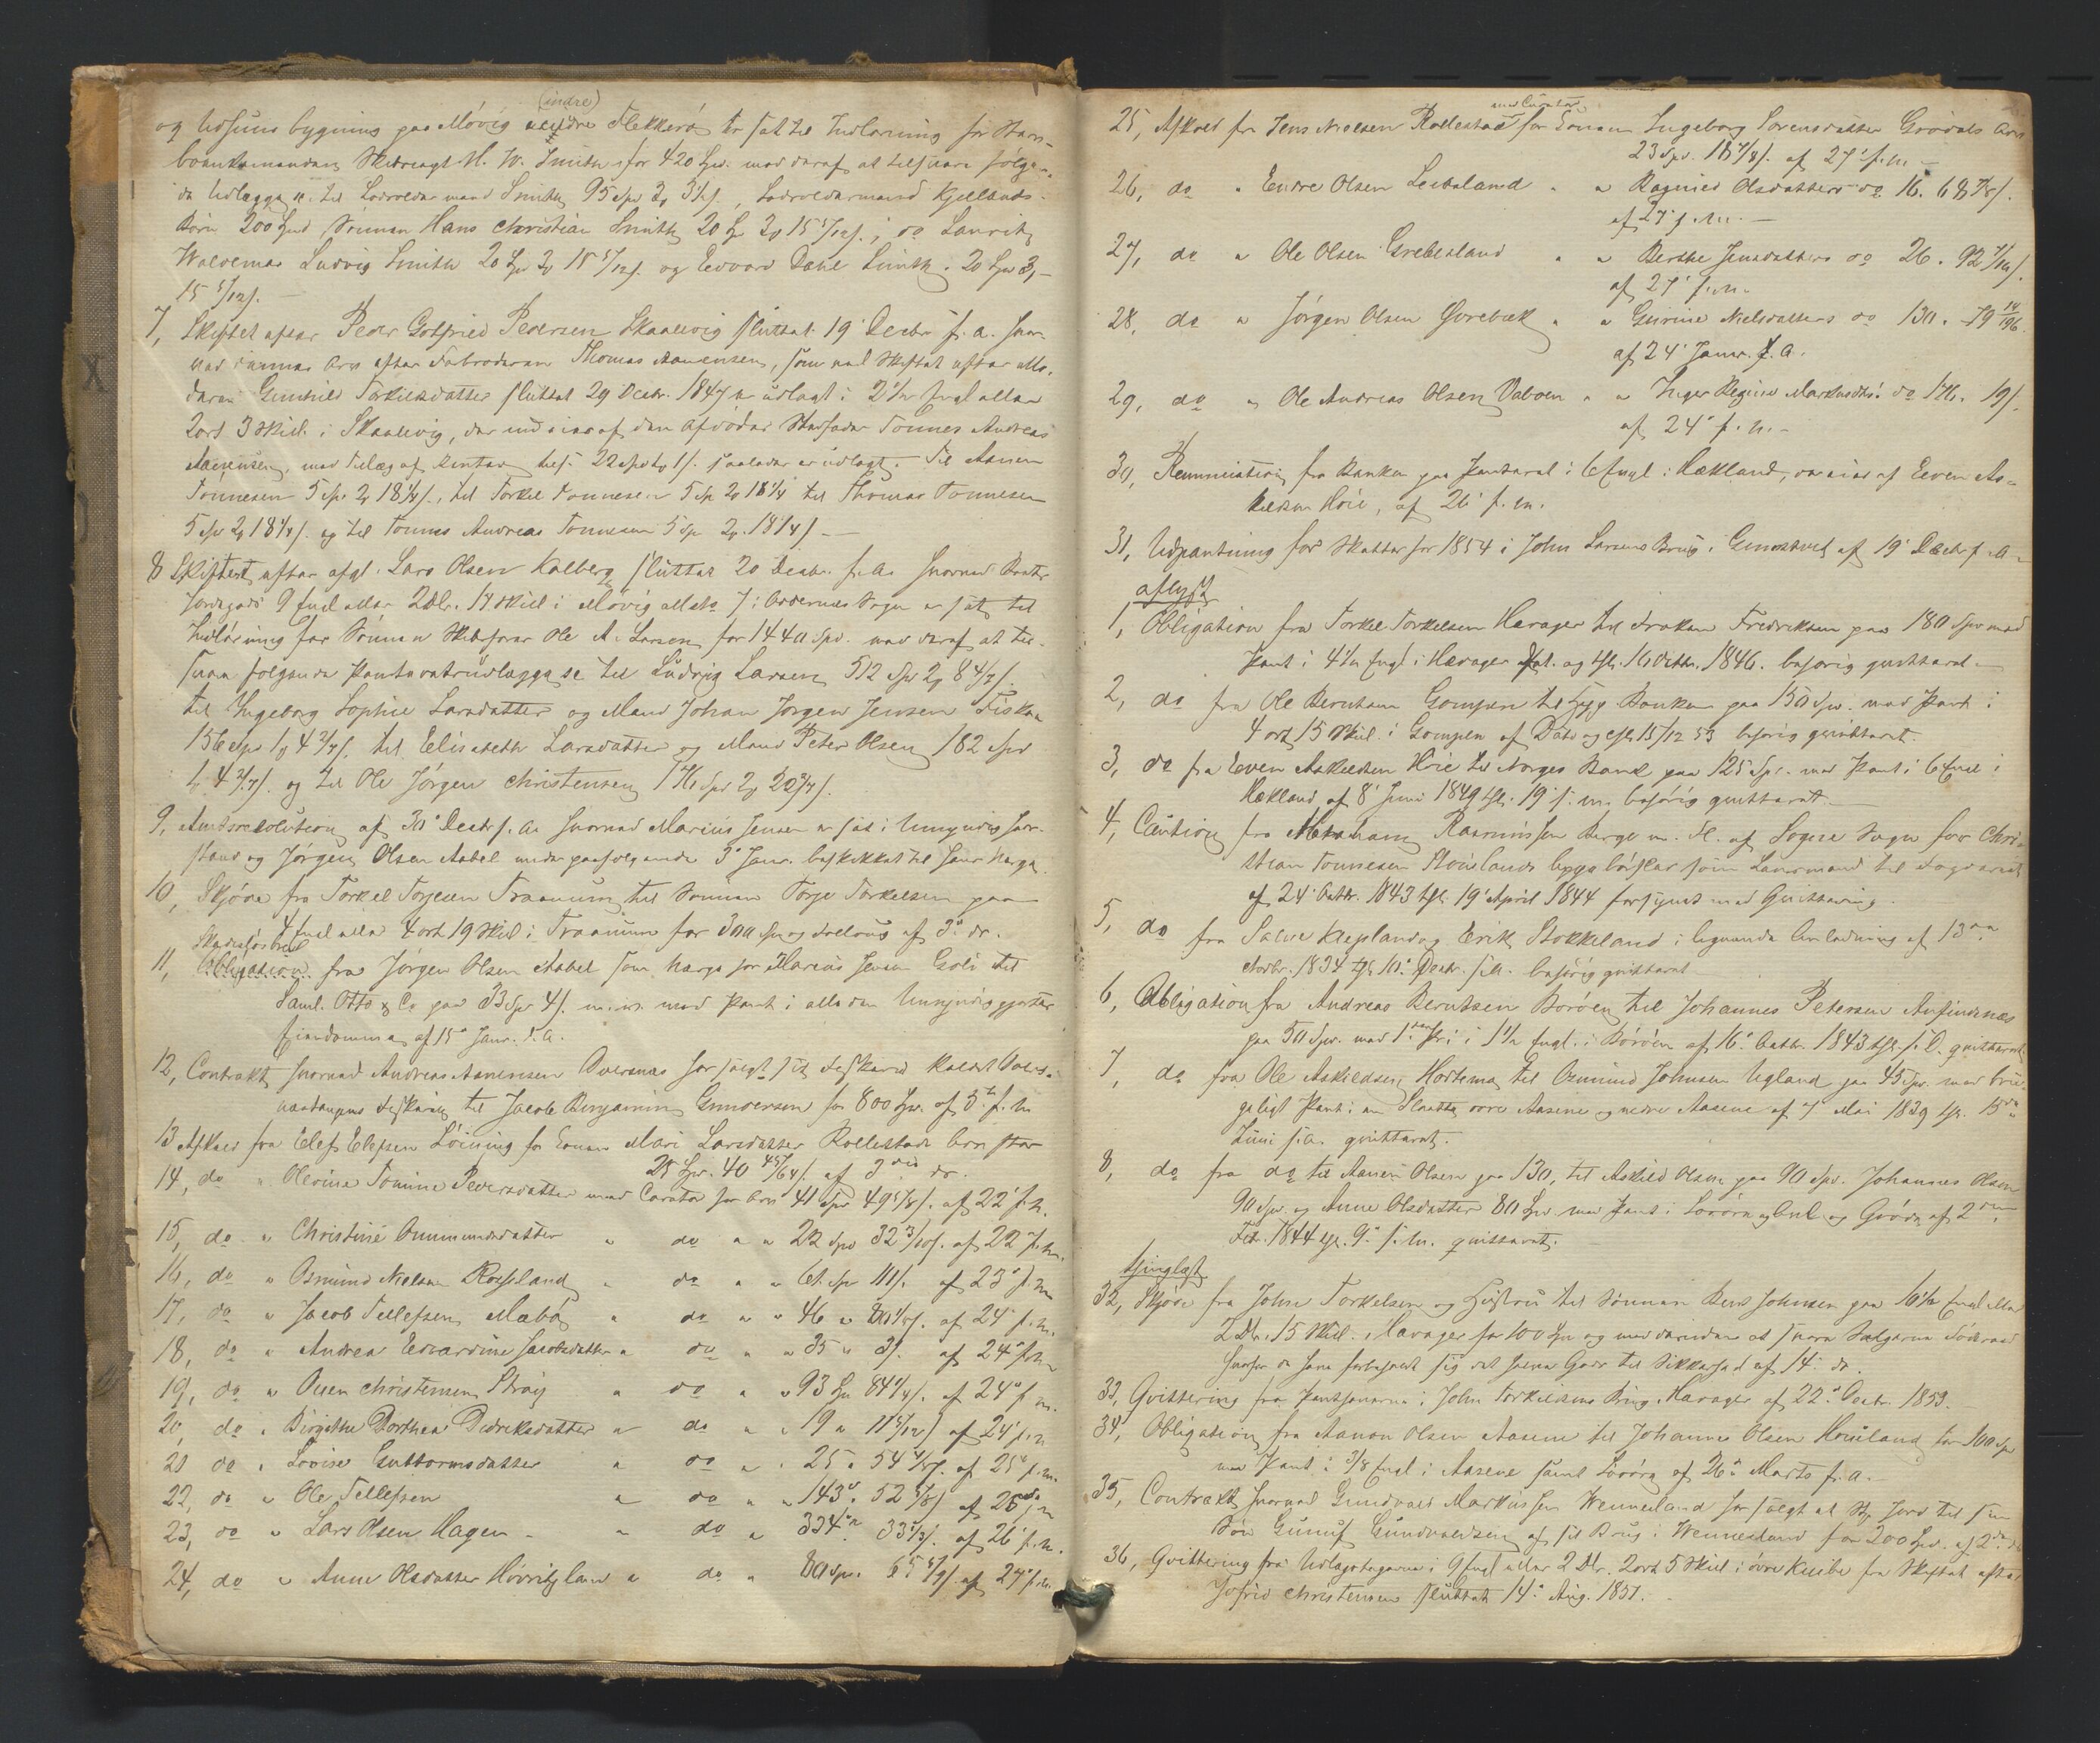 (indre)
og Udhuus bygning paa Movig indre Flekkerø er sat til Indlösning for Stervboenkemanden Skibreagt M. W. Smith for 420 Spd. mod deraf at tilsvare følgende
Udlægge til Lodsoldermand Smith 95 Spd 3 , Lodsoldermand Kjellands
Börn 200 Spd Sönnen Hans Christian Smith 20 Sp 2 15 5/12 s; do Lauritz
Waldemar Ludvig Smith 20 Spd 2 15 5/12 s. og Edvard Dahl Smith 20 Spd 3
15 5/12 s.
7, Skiftet efter Peder Gotfried Pedersen Skaalevig sluttet 19 Decbr f. a. hvor
ved dennes Arv efter Fabroderen Thomas Aanensen, som ved Skiftet efter Mo-
deren Gunhild Torkildsdatter sluttet 29 Decbr. 1847 er udlagt i 2 1/2 Engl eller
2 ort 3 Skill. i Skaalevig, der nu eies af den afdödes Stedfader Tönnes Andreas
Aanensen, med Tillæg af Renter 22 Spd 1 s. saaledes er udlagt. Til Aanen
Tönnesen 5 Sp 2 18 1/4 s., til Torkel Tönnesen 5 Sp 2 18 1/4 til Thomas Tönnesen
5 Sp 2 18 1/4 s. og til Tönnes Andreas Tönnesen 5 Sp 2. 18 1/4 s —
8 Skiftet efter afgl. Lars Olsen Kalberg sluttet 20 Decbr. f. A. hvorved Boets
Jordegods 9 Engl eller 2 Dlr. 14 Skill i Movig i Oddernes Sogn er sat til
Indlösning for Sönnen Skibsfører Ole A. Larsen for 1440 Spd. mod deraf at til-
svare følgende Panteretsudlægge se til Ludvig Larsen 512 Spd 2 8 4/7 s.
til Ingeborg Sophie Larsdatter og Mand Johan Jørgen Jensen Fiskaa
156 Spd 1 4 2/7 s. til Elisabeth Larsdatter og Mand Peter Olsen 182 Spd
1 4 2/7 s. og til Ole Jørgen Christensen 176 Spd 2 20 2/7 s.
9, Amtsresolution af 30 Decbr f. a. hvorved Marius Jensen er sat i Umyndig for-
stand og Jørgen Olsen Aabel under paafølgende 3 Janr. beskikket til hans Værge
10, Skjöde fra Torkel Torjesen Traanum til Sönnen Torje Torkelsen paa
4 Engl eller 4 ort 19 Skill i Traanum for 300 Spd og Follaug af 3. ds.
Skadesløsbrev
11, Obligation fra Jørgen Olsen Aabel som Værge for Marius Jensen til
Saml. Otto & Co paa 33 Spd 4 s. m. m. med Pant i alle den Umyndiggjortes
Eiendomme af 15 Janr. d. a.
12, Contrakt hvorved Andreas Aanensen Odderenes har solgt sit Fiskeværd kaldet
Fiskevær til Jacob Benjamin Gundersen for 800 Spd. af 5. f. M
13 Afkald fra Elef Elefsen Löining for Konens Mari Larsdatter Rollestads Arv
25 Spd. 40 45/64 s. af 3die ds.
14, do " Olerine Tomine Pedersdatter med Curator for Arv 41 Spd 49 5/8 s. af 22 f. M.
15, do " Christine Ommundsdatter " do " " 22 Spd 32 3/10 s. af 22 f. m.
16, do " Osmund Nielsen Rosseland " do " " 61 Spd 111 s. af 23 f. m
17, do " Jacob Tellefsen Mæbø " do " " 46 " 80 s. af 24 f. m.
18, do " Andrea Edvardine Jacobsdatter " do " " 35 " 3 s. af 24 f. m
19, do " Ouen Christensen Straÿ " do " " 93 Spd 84 1/4 s. af 24 f m.
20, do " Birgithe Dorthea Didreksdatter " do " " 19 " 11 5/12 s af 24 f. m
21 do " Lovise Guttormsdatter " do " " 25 " 54 s. af 25 f. m.
22, do " Ole Tellefsen " do " " 143 " 52 5/8 s af 26 f m
23, do " Lars Olsen Hagen " do " 334 " 33 1/3 s. af 26 f. m.
24, do " Anne Olsdatter Höivitzland " do " 80 Spd. 65 s. af 27 f. m.
med Curator
25, Afkald fra Jens Nielsen Rollestad for Konen Ingeborg Sörensdatter Grödals Arv
23 Spd. 18 7/8 s. af 27 f. m —
26, do " Endre Olsen Leibeland " " Ragnild Olsdatters do 16. 68 s.
af 27 f. m. —
27, do " Ole Olsen Grebesland " " Berthe Jensdatters do 26. 92 s.
af 27 f. m.
28, do " Jörgen Olsen Gorebæk " " Gurine Nielsdatters do 130. 79 14/96
af 24 Janr. d. a.
29, do " Ole Andreas Olsen Vaboen " " Inger Regine Markusdtr. do 176. 19 s.
af 24 f. m. —
30, Renunciation fra Banken paa Panteret i 6 Engl i Hækland, der eies af Even As-
kildsen Hoie, af 26 f. m.
31, Udpantning for Skatter for 1854 i John Larsens Brug i Gunestved af 19 Decbr f. a.
aflyst
1, Obligation fra Torkel Torkelsen Hærager til Fröken Fredriksen paa 180 Spd med
Pant i 4 1/2 Engl i Hærager dat. og tgl. 16 Octbr. 1846. behörig qvitteret.
2, do fra Ole Berntsen Gompen til Hyp. Banken paa 150 Spd. med Pant i
4 ort 15 Skill. i Gompen af Dato og tgl. 15/12 53 behörig qvitteret.
3, do fra Even Askildsen Hoie til Norges Bank paa 125 Spd. med Pant i 6 Engl i
Hækland af 8 Juni 1849 tgl. 19 s. m. behörig qvitteret.
4, Caution fra Abraham Rasmussen Berge m. Fl. af Sogne Sogn for Chri-
stian Tönnesen Stouslands Oppebörsler som Lensmand til Fogderiet
af 24 Octbr. 1843 tgl. 19 April 1844 forsynet med Qvittering.
5, do fra Salve Kleplands Erik Stokkeland i lignende Anledning af 13de
Novbr. 1834 tgl. 10. Decbr. s. A. behörig qvitteret
6, Obligation fra Andreas Berntsen Boröen til Johannes Petersen Anfindsnæs
paa 50 Spd. med 1ste Pri i 1 1/2 Engl. i Boröen af 16. Octbr. 1843 tgl. s. D. qvitteret
7, do fra Ole Askildsen Hortemo til Osmund Johnsen Ugland paa 45 Spd. med brü-
geligt Pant i en Slaatte övre Aasene og nedre Aasene af 7 Mai 1839 tgl. 15de
Juni s. a. qvitteret.
8, do fra do til Aanen Olsen paa 130, til Askild Olsen paa 90 Spd. Johannes Olsen
90 Spd. og Anne Olsdatter 80 Spd. med Pant i Lovöra og Gröda af 2den
Febr. 1844 tgl. 9. s. M. qvitteret.
tinglæst
32, Skjöde fra John Torkelsen og Hustrü til Sönnen Bent Johnsen paa 16 1/2 Engl eller
2 Dlr. 15 Skill. i Hærager for 100 Spd og mod desuden at svare Sælgerne Föderaad
hvorfor de have forbeholdt sig det halve Gaard til Sikkerhed af 14. ds.
33, Qvittering fra Panthaverne i John Torkildsens Brug Hærager af 22. Decbr. 1853.
34, Obligation fra Aanon Olsen Aasene til Johannes Olsen Houeland for 100 Sp
med Pant i 3/8 Engl i Aasene samt Lovöra af 26. Marts f. a. —
35, Contrakt hvorved Gundvald Markussen Wenneslaud har solgt et St. Jord til sin
Sön Gunuf Gundvaldsen af sit Brug i Wennesland for 200 Spd. af 2den
36, Qvittering fra Udlægstagerne i 9 Engl eller 2 Dlr. 2 ort 5 Skill i övre Knibe fra Skiftet efter
Jofrid Christensen sluttet 14. Aug. 1851.